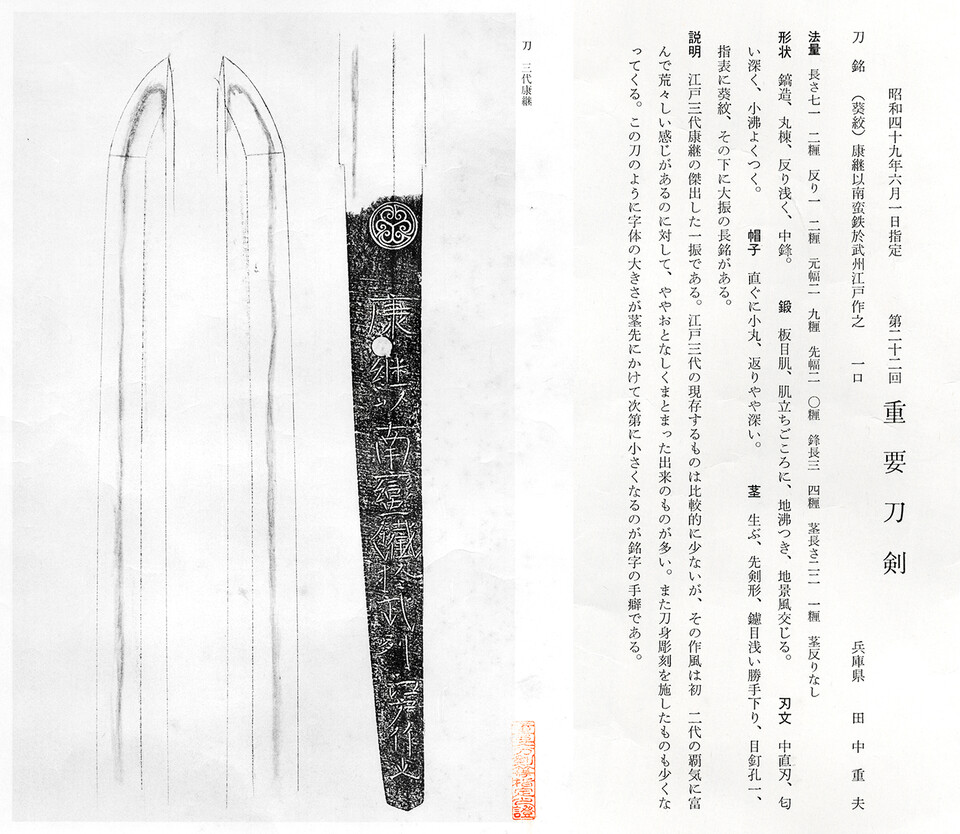 昭和四十九年六月一日指定　第二十二回　重要刀剣
刀　銘　（葵紋）康継以南蛮鉄於武州江戸作之　一口　兵庫県　田中重夫
法量　長さ七一　二糎　反り一　二糎　元幅二　九糎　先幅二　〇糎　鋒長三　四糎　茎長さ二二　一糎　茎反りなし
形状　鎬造、丸棟、反り浅く、中鋒。　鍛　板目肌、肌立ちごころに、地沸つき、地景風交じる。　刃文　中直刃、匂
い深く、小沸よくつく。　帽子　直ぐに小丸、返りやや深い。　茎　生ぶ、先剣形、鑢目浅い勝手下り、目釘孔一、
指表に葵紋、その下に大振の長銘がある。
説明　江戸三代康継の傑出した一振である。江戸三代の現存するものは比較的に少ないが、その作風は初　二代の覇気に富
んで荒々しい感じがあるのに対して、ややおとなしくまとまった出来のものが多い。また刀身彫刻を施したものも少くな
ってくる。この刀のように字体の大きさが茎先にかけて次第に小さくなるのが銘字の手癖である。
刀　三代康継
康継以南蛮鐵於武州江戸作之